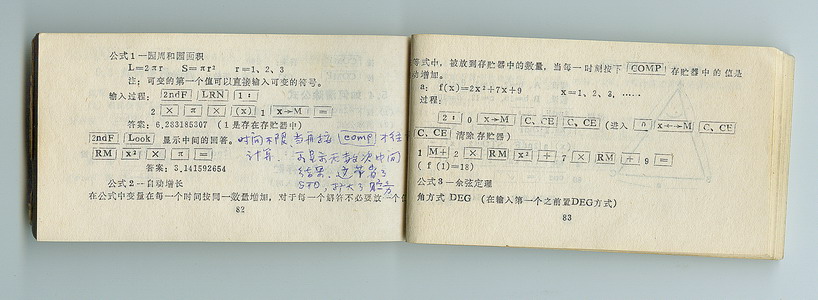 公式1一圆周和圆面积
L=2πr　S=πr²　r=1、2、3
注：可变的第一个值可以直接输入可变的符号。
输入过程：2ndF LRN 1:
2 × π × (x) 1 x→M =
答案：6,283185307 (1是存在存贮器中)
2ndF Look 显示中间的回答。时间不限，当再按 comp 才往
RM x² × π = 计算.
结果.
答案：3.141592654
公式2－自动增长
在公式中变量在每一个时间按同一数量增加，对于每一个解答不必要放一个值
82
等式中，被放到存贮器中的数量，当每一时刻按下 COMP 存贮器中的值是
动增加。
a: f(x)=2x²+7x+9　x=1、2、3、……
过程：
2: 0 x→M C、CE C、CE (进入 0 x←→M C、CE
C、CE 清除存贮器)
1 M+ 2 × RM x² + 7 × RM + 9 =
(f(1)=18)
公式3－余弦定理
角方式 DEG (在输入第一个之前置DEG方式)
83